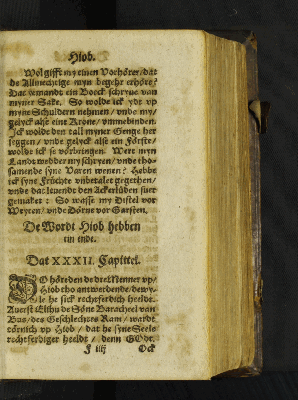 Hiob.
Wol gifft my einen Vorhörer / dat
de Allmechtige myn begehr erhöre?
Dat yemandt ein Boeck schryue van
myner Sake. So wolde ick ydt vp
myne Schuldern nehmen / vnde my /
gelyck alse eine Krone / vmmebinden.
Ick wolde den tall myner Genge her
seggen / vnde gelyck alse ein Förste /
wolde ick se vörbringen. Wert myn
Landt wedder my schryen / vnde tho-
samende syne Varen wenen? Hebbe
ick syne Früchte vnbetalet gegethen /
vnde dat leuendt den Ackerlüden suer
gemaket: So wasse my Distel vor
Weyten / vnde Dörne vor Garsten.
De Wordt Hiob hebben
ein ende.
Dat XXXII. Capittel.
DO höreden de dre Menner vp /
Hiob tho antwerdende / dewy-
le he sick rechtferdich heelde.
Auerst Elihu de Söne Baracheel van
Bus / des Geschlechtes Ram / wardt
törnich vp Hiob / dat he syne Seele
rechtferdiger heeldt / denn GOdt.
F iiij Ock